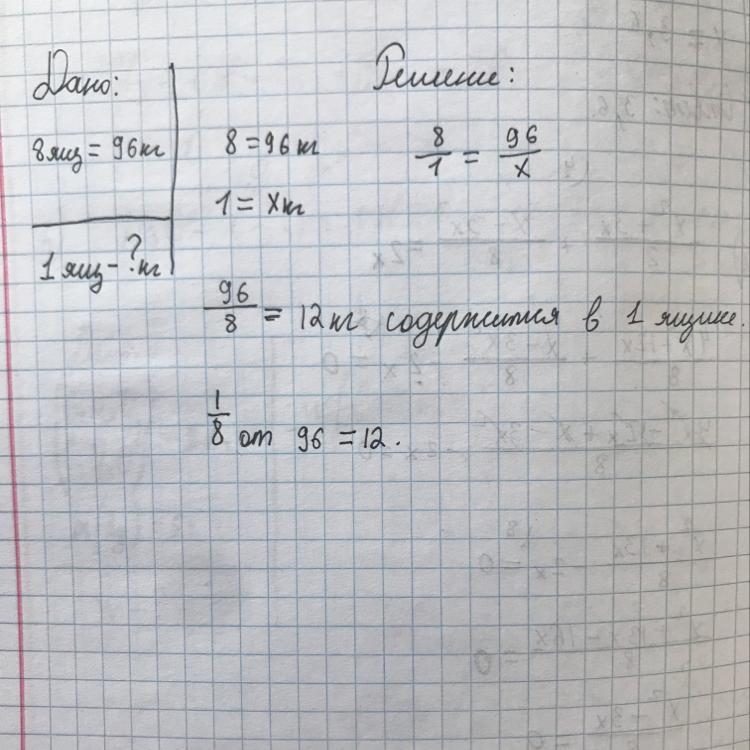 Дано:
8 ящ = 96 кг
1 ящ - ? кг
Решение:
8 = 96 кг
1 = x кг
8/1 = 96/x
96/8 = 12 кг содержится в 1 ящике.
1/8 от 96 = 12.